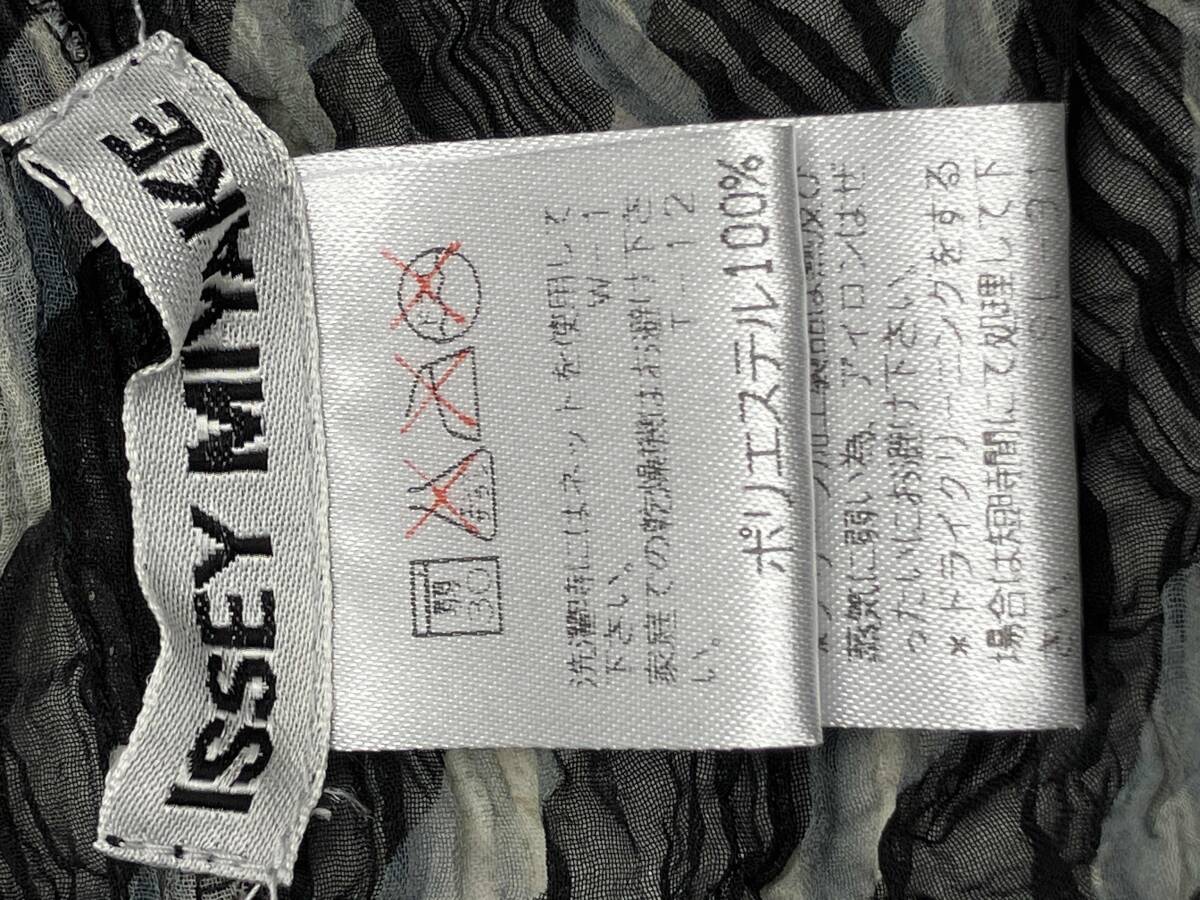 ISSEY MIYAKE
弱
30
洗濯時にはネットを使用して
下さい。 W-1
家庭での乾燥機はお避け下さ
い。 T 1 2
ポリエステル100%
蒸気に弱い為、アイロンはぜ
ったいにお避け下さい。
*ドライクリーニングをする
場合は短時間にて処理して下
さい。